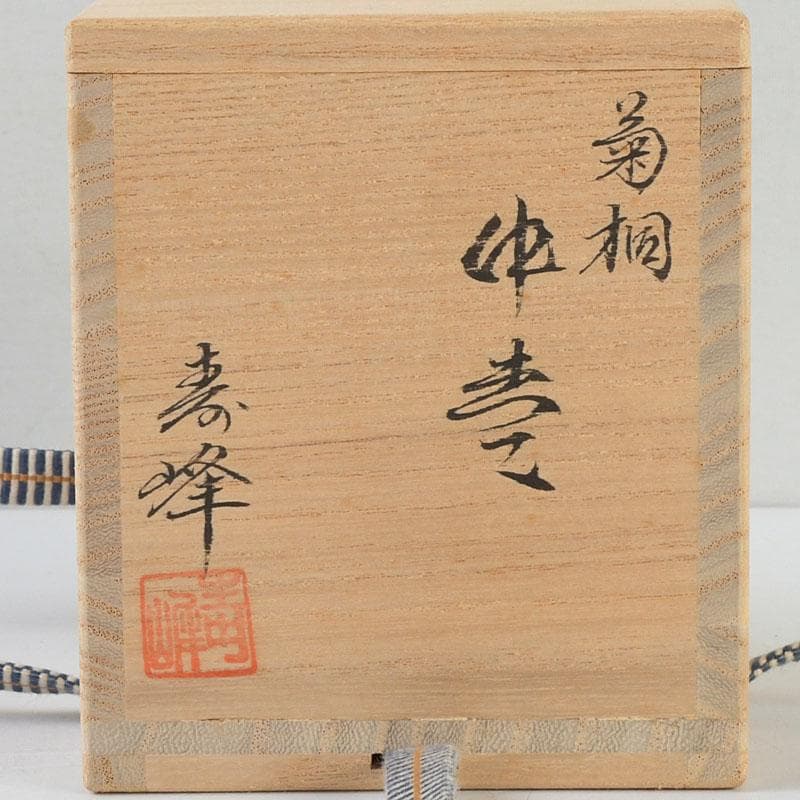 菊桐
中棗
寿峰